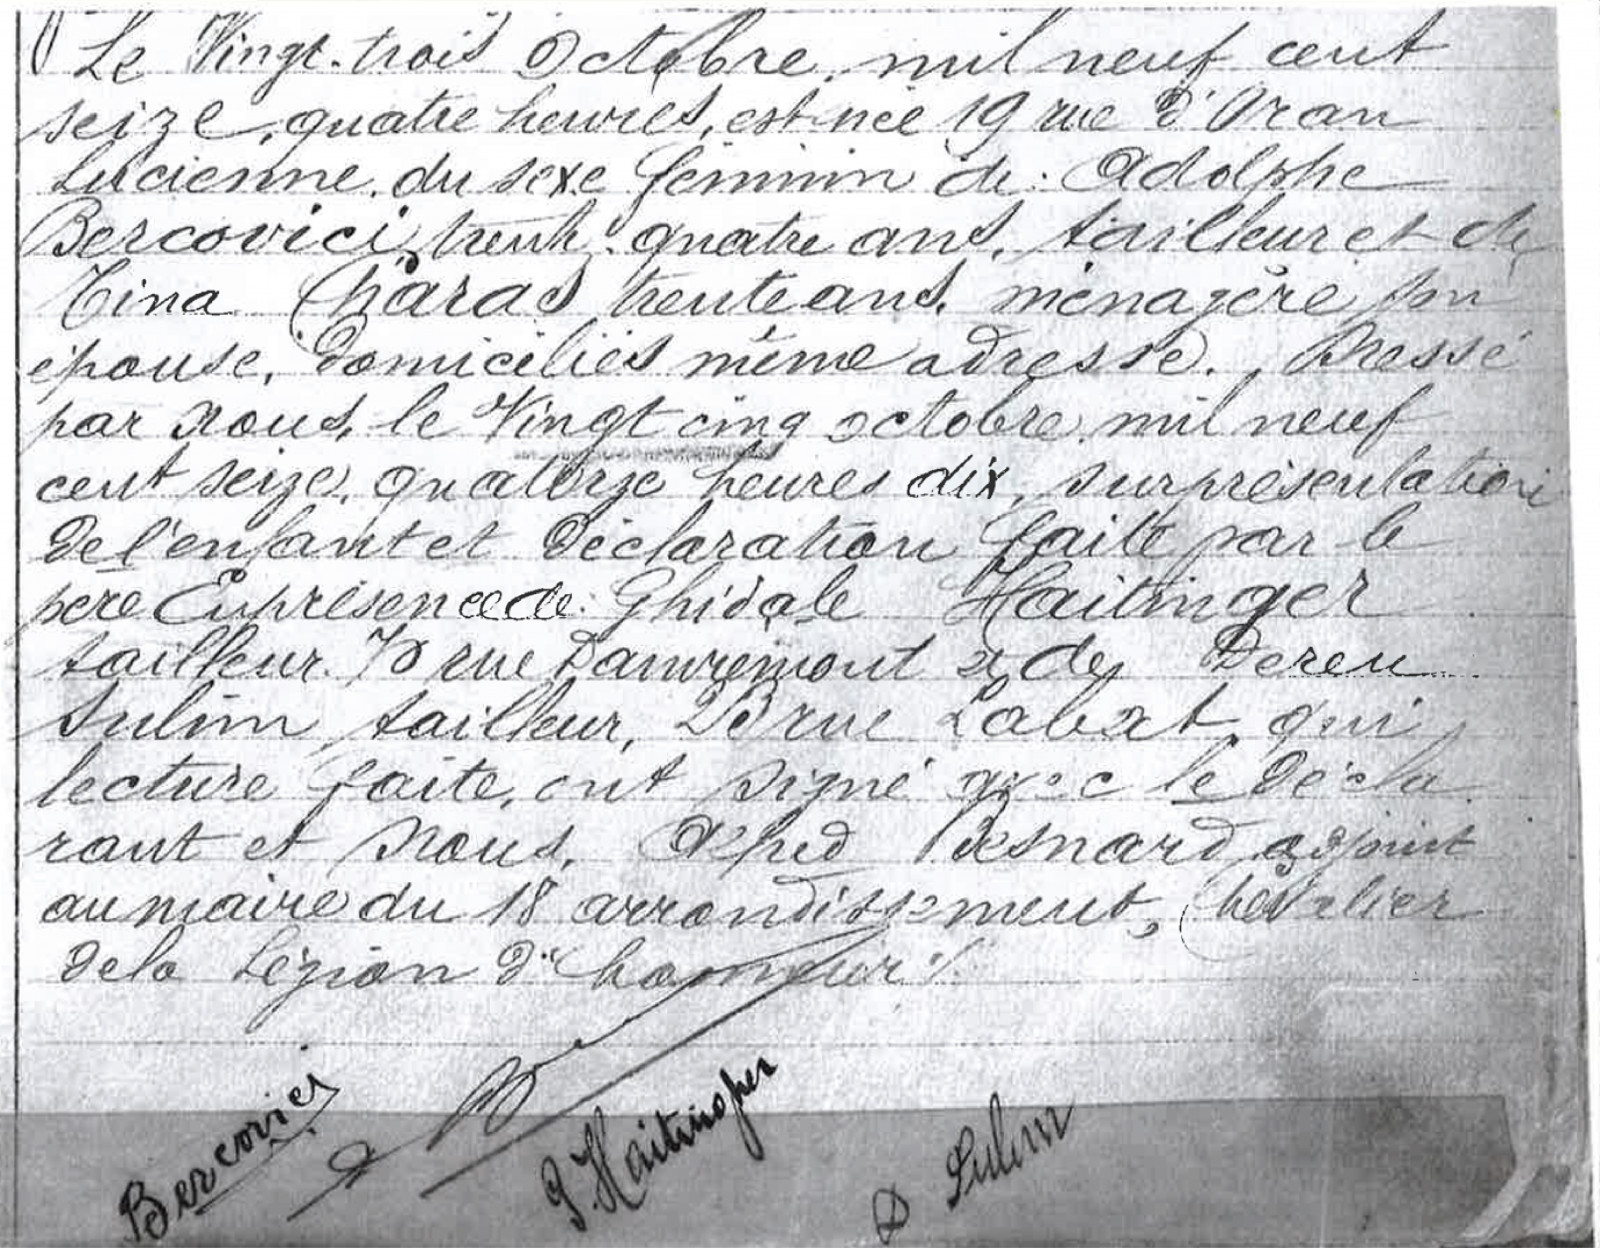 Le Vingt-trois Octobre, mil neuf cent
seize, quatre heures, est née 19 rue d'Oran
Lucienne, du sexe féminin de: Adolphe
Bercovici, trente-quatre ans, tailleur et de
Tina Charas trente ans, ménagère son
épouse, domiciliés même adresse. Dressé
par nous, le Vingt cinq octobre, mil neuf
cent seize, quatorze heures dix, sur présentation
de l'enfant et déclaration faite par le
père En présence de: Ghidale Haitinger
tailleur. rue Damrémont & de Dereu
Sulim tailleur, rue Labat, qui
lecture faite, ont signé avec le décla
rant et Nous, Alfred Besnard adjoint
au maire du 18 arrondissement, Chevalier
de la Légion d'honneur ./.
Bercovici
G. Haitingher
D Sulim